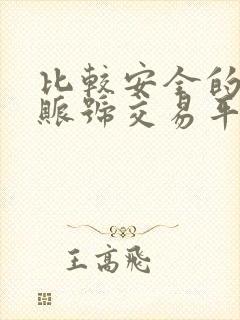 比較安全的
賬號交易平
王高飛